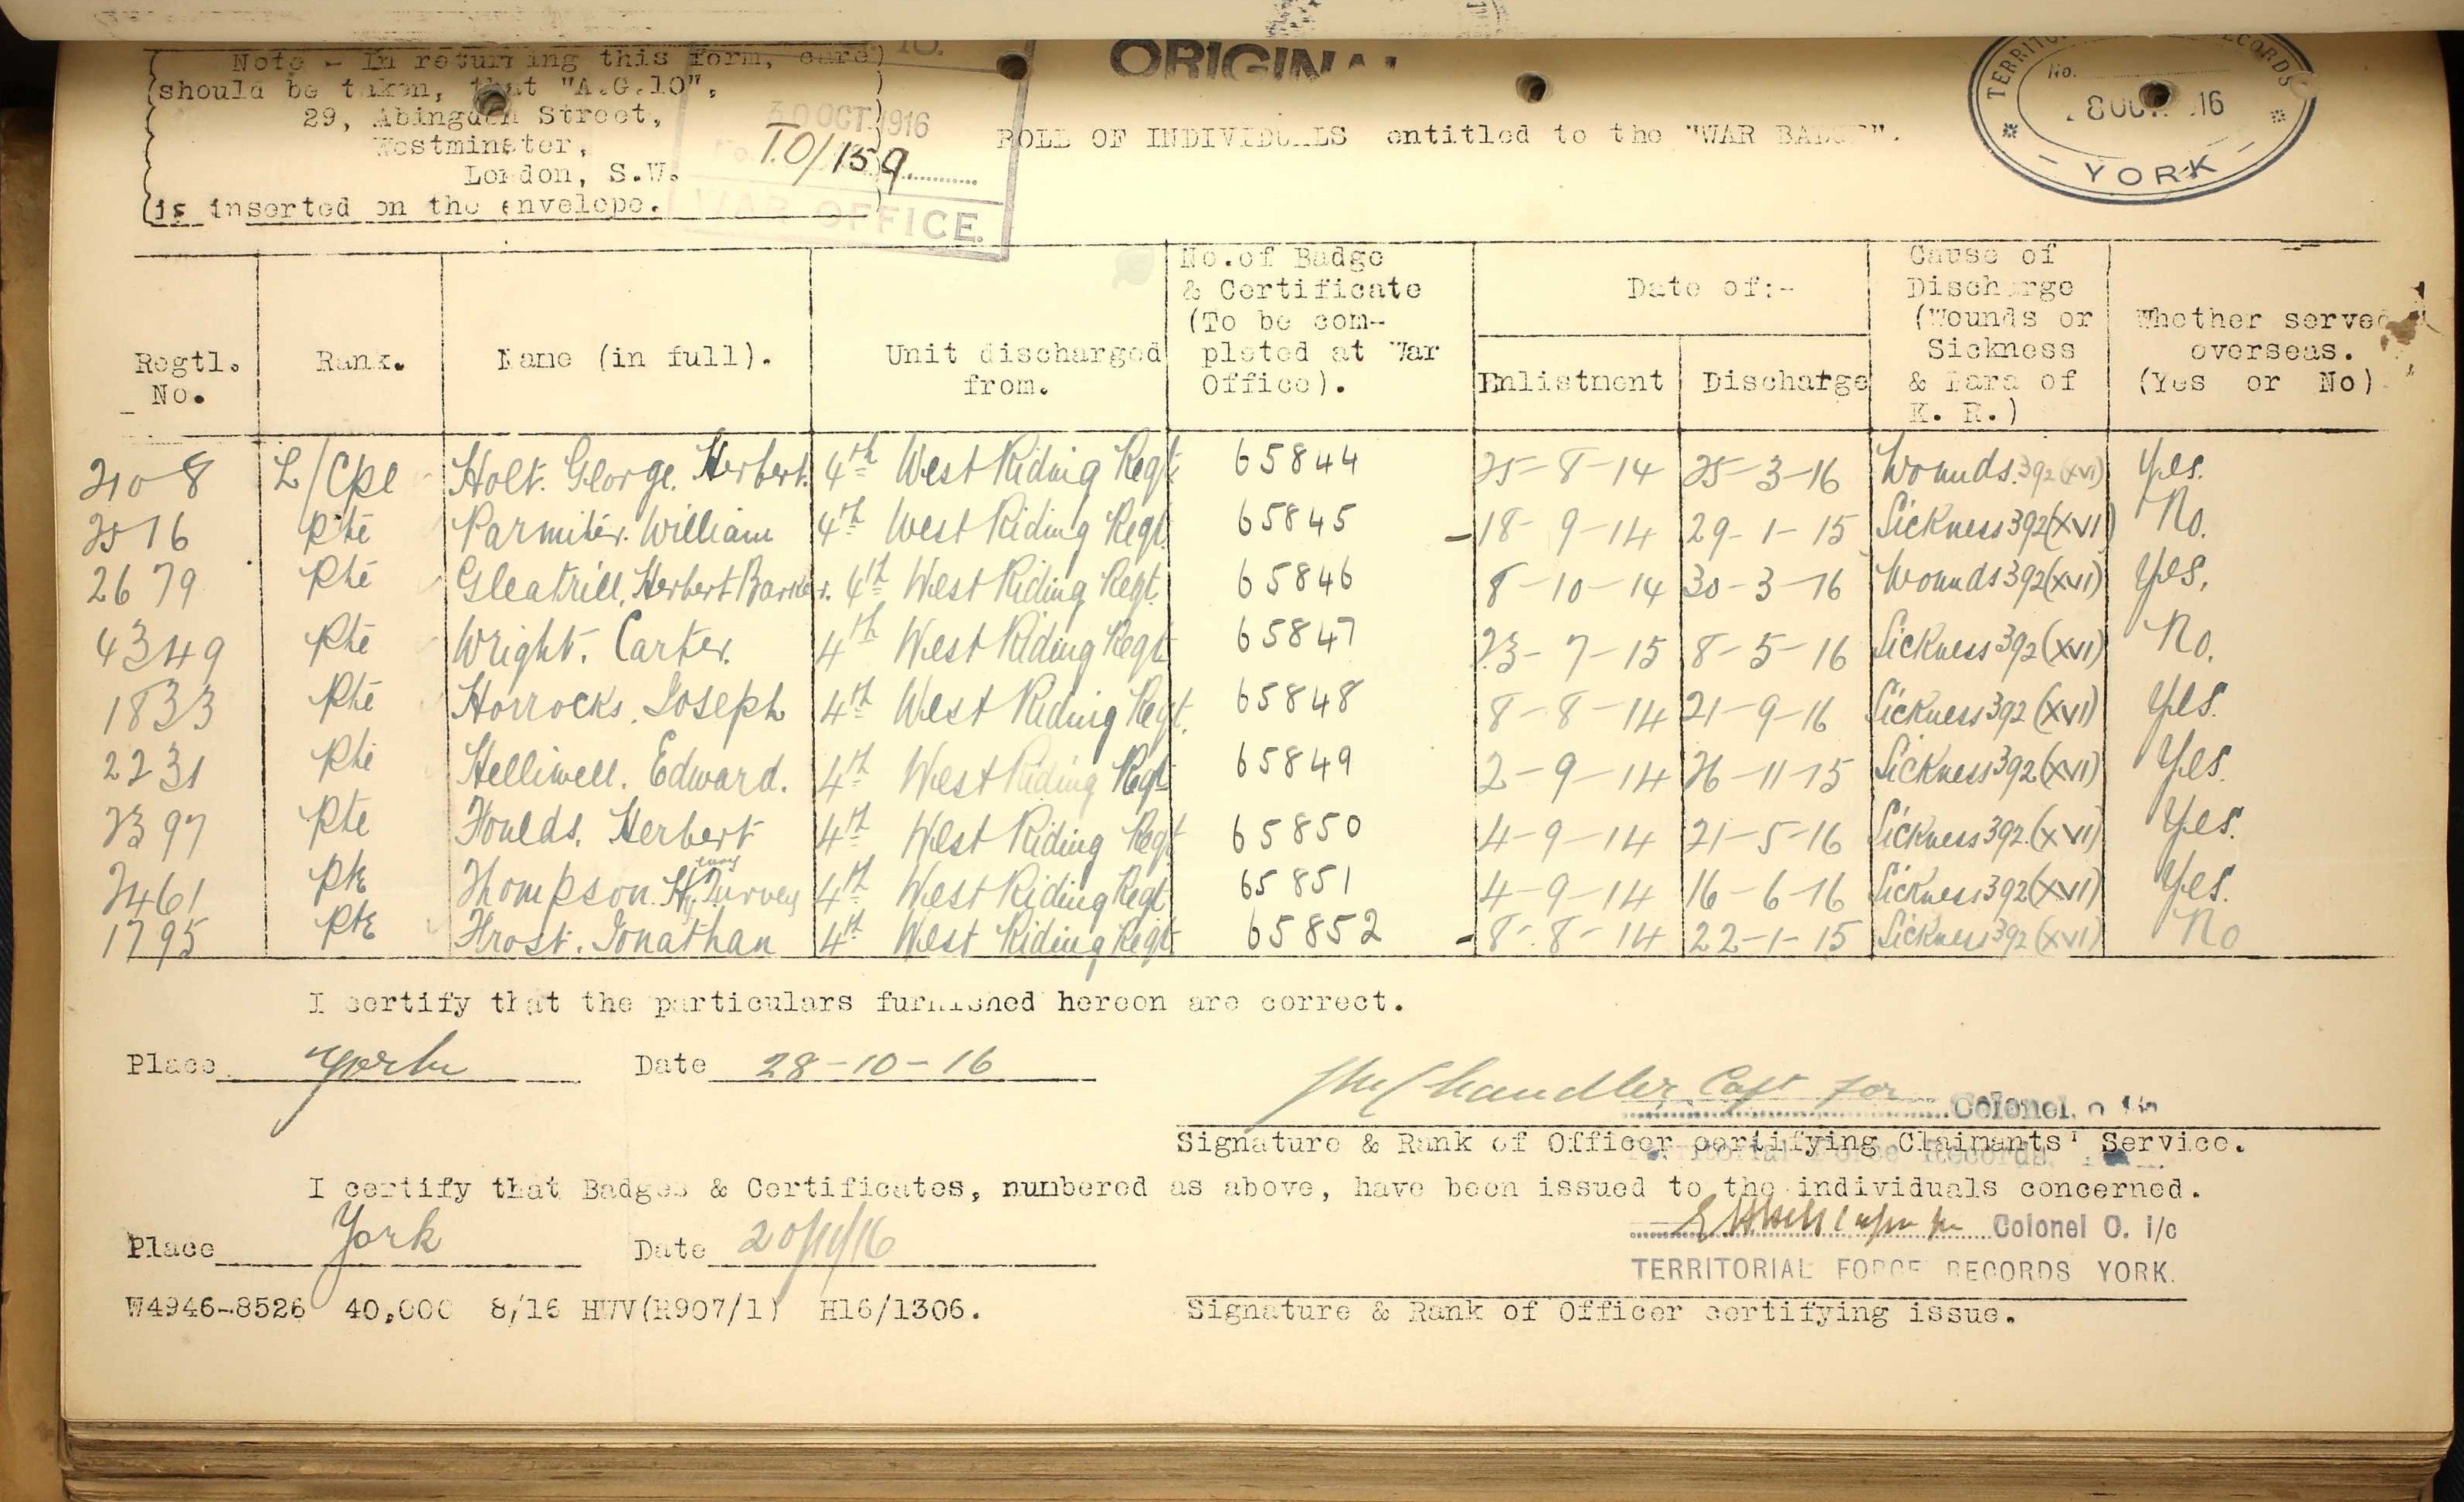 Note - In returning this form, care
should be taken, that "A.G.10",
29, Abingdon Street,
Westminster,
London, S.W.
is inserted on the envelope.
30 OCT 1916
T.O/159
WAR OFFICE.
ORIGINAL
ROLL OF INDIVIDUALS entitled to the "WAR BADGE".
No.
YORK
Regtl. No. Rank. Name (in full). Unit discharged from. No. of Badge & Certificate (To be completed at War Office). Date of:- Enlistment Discharge Cause of Discharge (Wounds or Sickness & Para of K. R.) Whether served overseas. (Yes or No)
2108 L/Cpl Holt. George. Herbert. 4th West Riding Regt 65844 25-8-14 25-3-16 Wounds. 392(xvi) Yes.
2576 Pte Parmiter. William 4th West Riding Regt. 65845 -18-9-14 29-1-15 Sickness 392(xvi) No.
2679 Pte Gleatrill, Herbert Barker. 4th West Riding Regt. 65846 8-10-14 30-3-16 Wounds 392(xvi) Yes.
4349 Pte Wright. Carter. 4th West Riding Regt 65847 23-7-15 8-5-16 Sickness 392(xvi) No.
1833 Pte Horrocks. Joseph 4th West Riding Regt. 65848 8-8-14 21-9-16 Sickness 392(xvi) Yes.
2231 Pte Helliwell. Edward. 4th West Riding Regt 65849 2-9-14 26-11-15 Sickness 392(xvi) Yes.
2397 Pte Foulds. Herbert 4th West Riding Regt 65850 4-9-14 21-5-16 Sickness 392.(xvi) Yes.
2461 Pte Thompson. Hy. 4th West Riding Regt 65851 4-9-14 16-6-16 Sickness 392(xvi) Yes.
1795 Pte Frost. Jonathan 4th West Riding Regt 65852 -8-8-14 22-1-15 Sickness 392(xvi) No
I certify that the particulars furnished hereon are correct.
Place York Date 28-10-16
Chandler Capt for Colonel
Signature & Rank of Officer certifying Claimants' Service.
Territorial Force Records
I certify that Badges & Certificates, numbered as above, have been issued to the individuals concerned.
Place York Date 20/11/16
Colonel O. i/c
TERRITORIAL FORCE RECORDS YORK.
W4946-8526 40,000 8/16 HWV(R907/1) H16/1306.
Signature & Rank of Officer certifying issue.